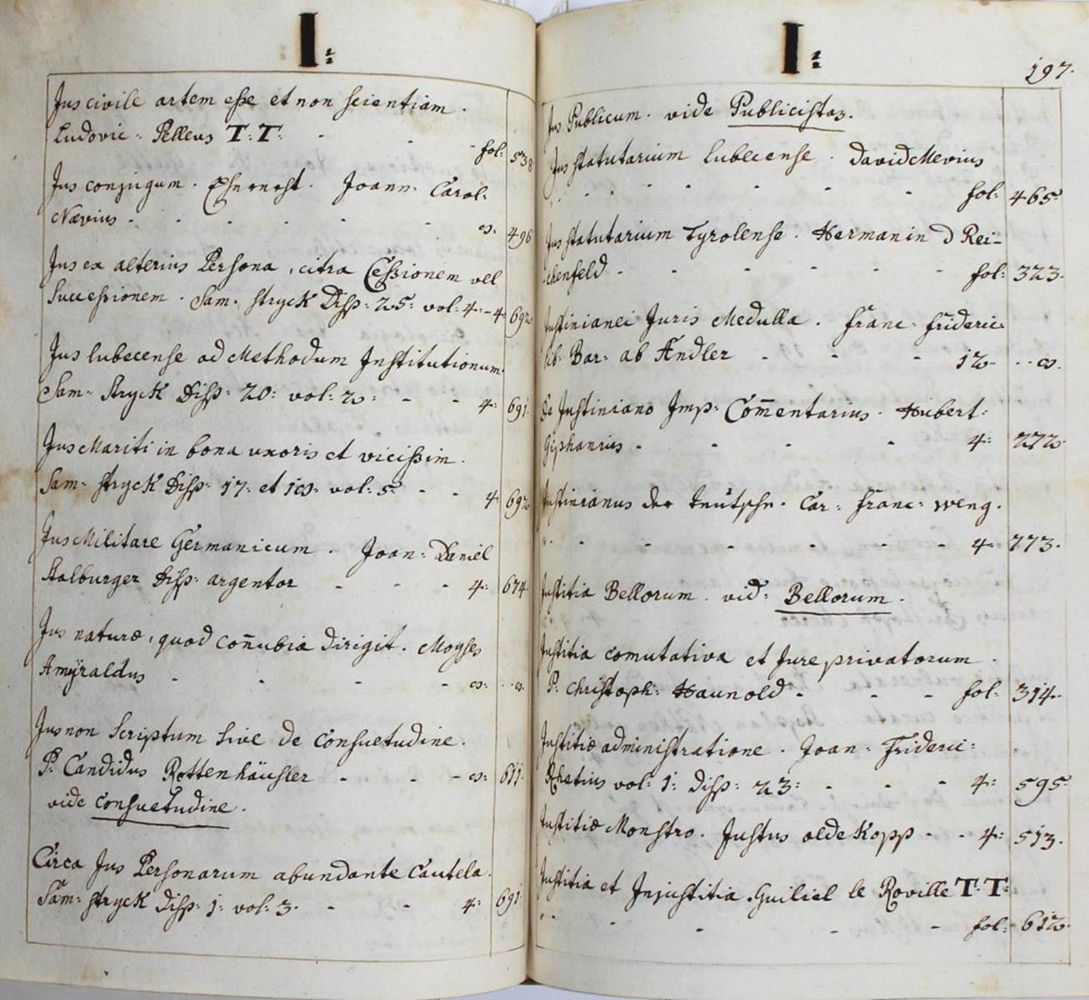 I:
Jus civile artem esse et non scientiam.
Ludovic: Pelleus T. T. - - fol: 538
Jus conjugum. Ehernest. Joann: Carol:
Nævius - - - - - 8. 496
Jus ex alterius Persona, citra Cessionem vel
Successionem. Sam: Stryck Disp: 25: vol: 4. - 4. 692
Jus lubecense ad Methodum Institutionum
Sam: Stryck Disp: 20: vol: 2: - - 4: 691.
Jus Mariti in bona uxoris et vicissim.
Sam: Stryck Disp: 17: et 18: vol: 5: - - 4: 692
Jus Militare Germanicum. Joan: Daniel
Stalburger Disp: argentor - - - 4: 674
Jus naturæ, quod coñubia dirigit. Moyses
Amÿraldus - - - - - 8: - 8.
Jus non Scriptum sive de Consuetudine.
P: Candidus Rottenhäusler - - - 8: 611
vide Consuetudine.
Circa Jus Personarum abundante Cautela.
Sam: Stryck Disp: 1: vol: 3. - - - 4: 691
I:
197.
Jus Publicum. vide Publicistas.
Jus Statutarium lubecense. David Mevius
- - - - - - fol: 465.
Jus Statutarium Tyrolense. Herman in D Rei-
chenfeld - - - - - fol: 323.
Justinianei Juris Medulla. Franc: Frideric:
lib: Bar: ab Andler - - - 12. - - 8.
De Justiniano Imp: Com̃entarius. Hubert:
Giphanius - - - - 4: 272
Justinianus der teutsche. Car: Franc: Weng.
- - - - - - 4. 773.
Justitia Bellorum. vid: Bellorum.
Justitia comutativa et Jure privatorum.
P: Christoph: Haunold - - - fol: 314.
Justitiæ administratione. Joan: Frideric:
Rhetius vol: 1: Disp: 23: - - - 4: 595.
Justitiæ Monstro. Justus oldekopp - - 4: 513.
Justitia et Injustitia. Guiliel le Roville T. T:
- - - - - - fol: 612.